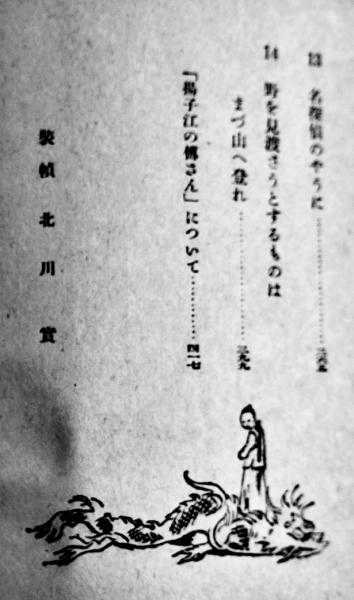 13 名探偵のやうに……………三六五
14 野を見渡さうとするものは
まづ山へ登れ……………三九九
「揚子江の傳さん」について…………四一七
裝幀 北川 實